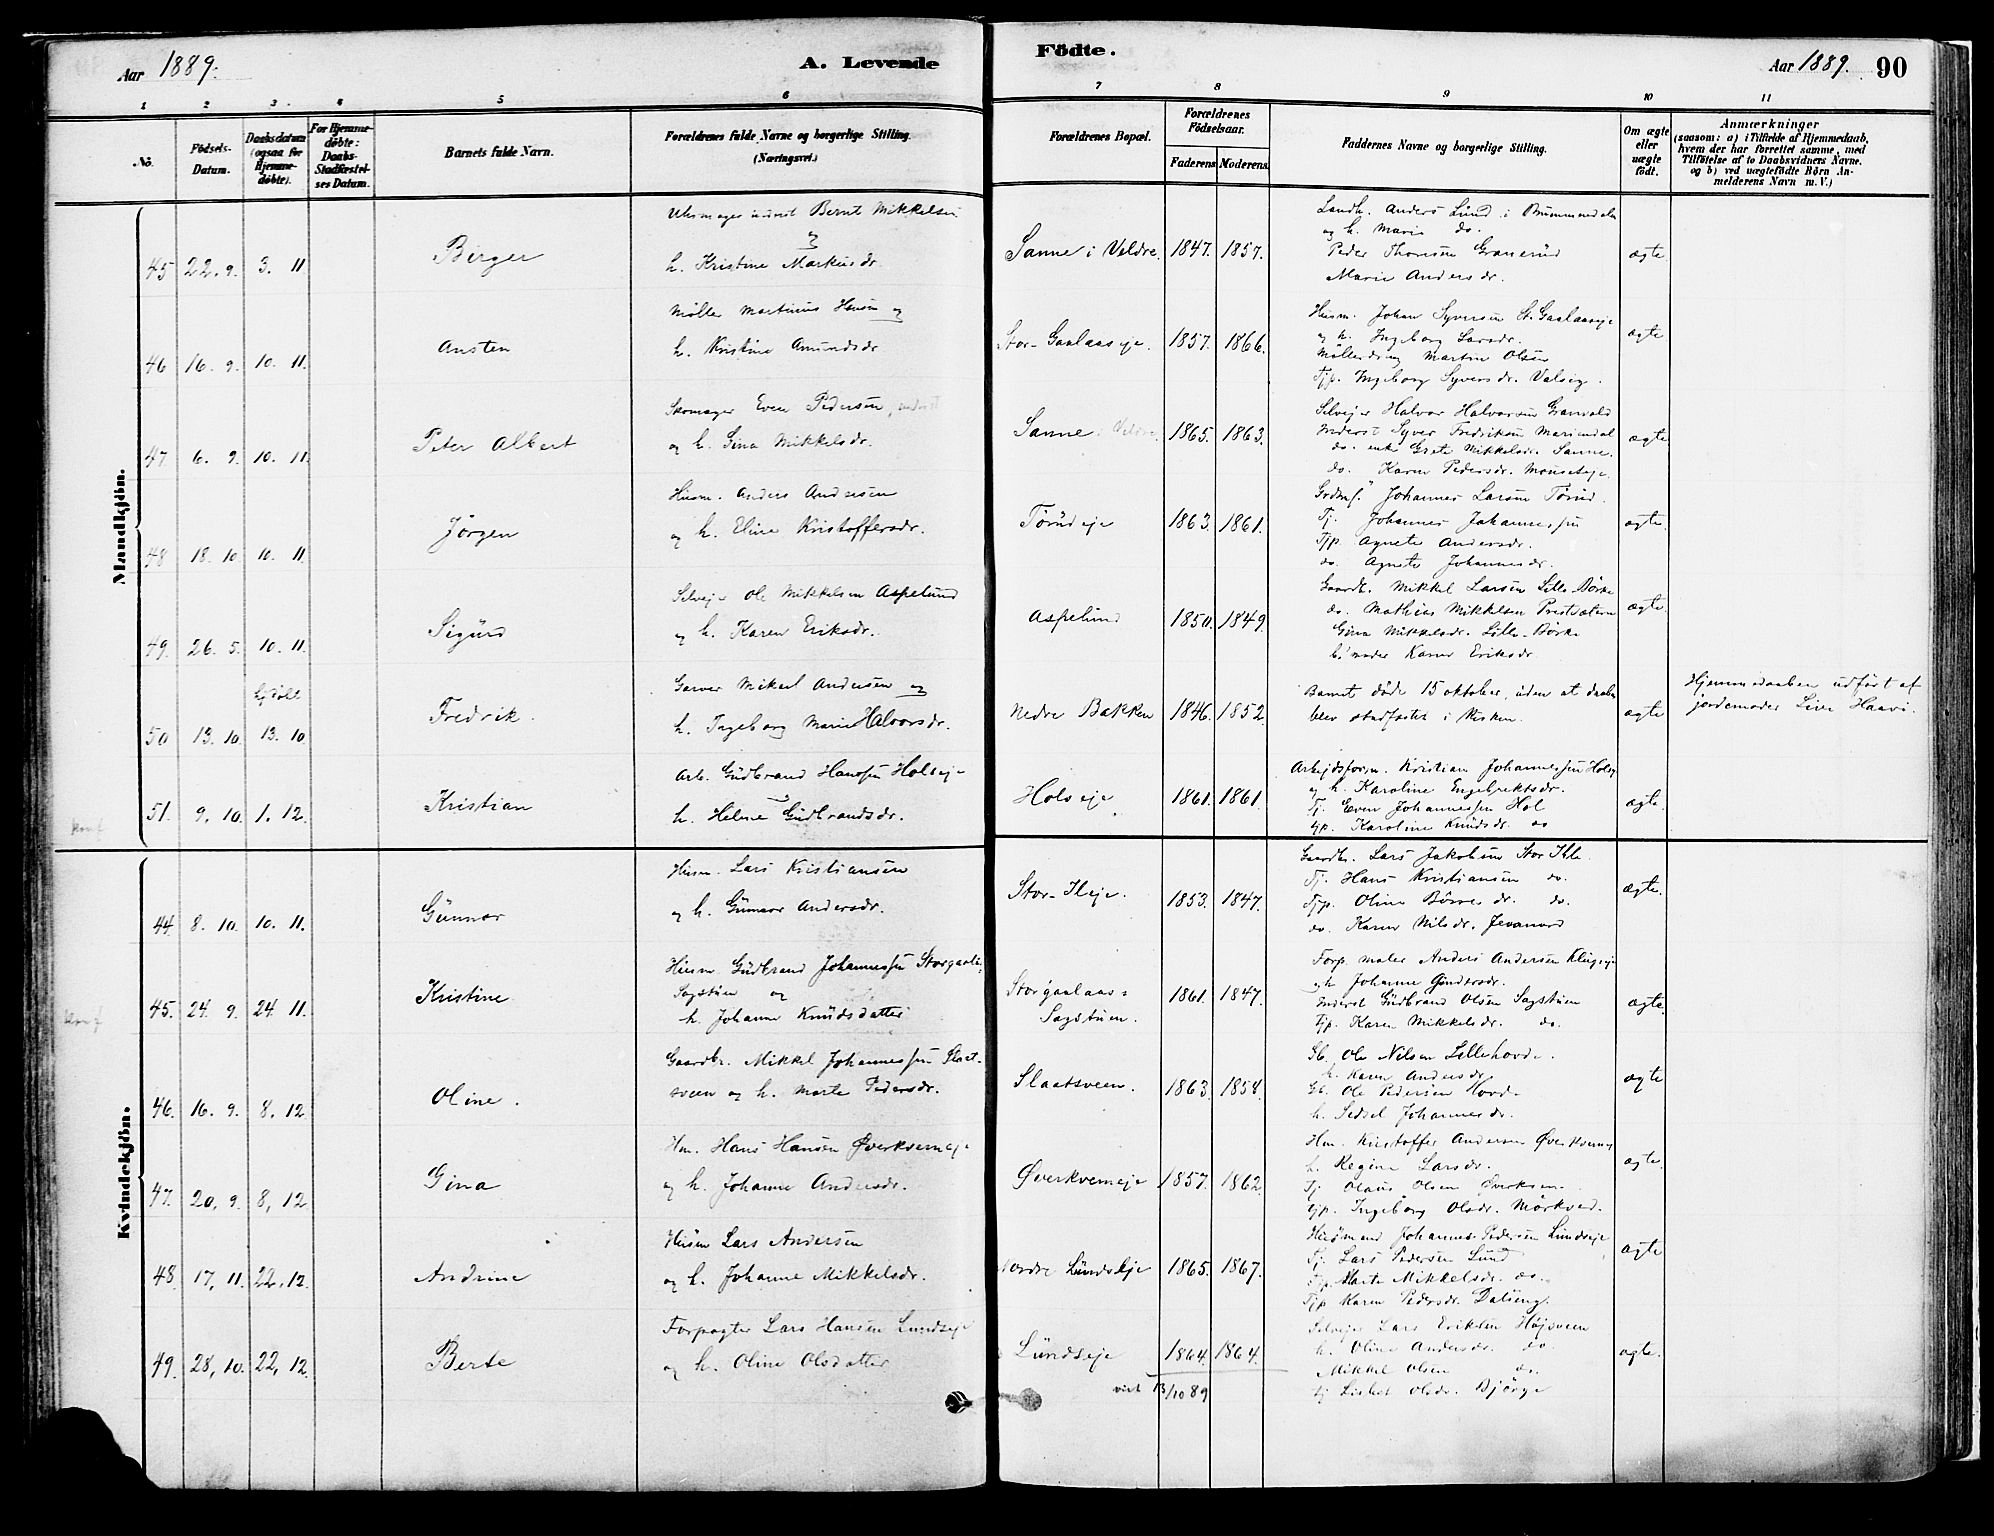 Aar 1889.
A. Levende
Fødte.
Aar 1889.
90
1
2
3
4
5
6
7
8
9
10
11
No.
Fødsels-Datum.
Daabsdatum (ogsaa for Hjemme-døbte).
For Hjemme-døbte: Daabs-Stadfæstel-ses Datum.
Barnets fulde Navn.
Forældrenes fulde Navne og borgerlige Stilling. (Næringsvei.)
Forældrenes Bopæl.
Forældrenes Fødselsaar.
Faderens
Moderens
Faddernes Navne og borgerlige Stilling.
Om ægte eller uægte født.
Anmærkninger
(saasom: a) i Tilfælde af Hjemmedaab, hvem der har forrettet samme, med Tilføielse af to Daabsvidners Navne. og b) ved uægtefødte Børn An-melderens Navn m. V.)
Mandkjøn.
45 22. 9. 3. 11 Birger
Uhrmager inderst Bernt Mikkelsen
og
h. Kristine Markusdr.
Sanne i Veldre. 1847. 1857.
Landh. Anders Lund i Brummundalen
og h. Marie do.
Peder Thoresen Granerud
Marie Andersdr.
ægte
46 16. 9. 10. 11. Austen
Møller Martinus Hansen og
h. Kristine Amundsdr
Stor-Gaalaaseje. 1857. 1866.
Husm. Johan Syversen St. Gaalaaseje
og h. Ingeborg Larsdr.
Møllerdreng Martin Olsen
Tjp. Ingeborg Syversdr. Valsig.
ægte
47 6. 9. 10. 11. Peter Albert
Skomager Even Pedersen, inderst
og h. Gina Mikkelsdr.
Sanne i Veldre. 1865. 1863.
Selvejer Halvor Halvorsen Granvold
Inderst Syver Fredriksen Mariendal
do. enke Grete Mikkelsdr. Sanne.
do. Karen Pedersdr.
ægte
48 18. 10 10. 11. Jörgen
Husm. Anders Andersen
og h. Eline Kristoffersdr.
Törudeje 1863. 1861.
Johannes Larsen Törud.
Tj. Johannes Johannessen
Tjp. Agnete Andersdr.
do. Agnete Johannesdr.
ægte.
49. 26. 5. 10. 11. Sigurd
Selvejer Ole Mikkelsen Aspelund
og h. Karen Eriksdr.
Aspelund 1850. 1849.
Gaardb. Mikkel Larsen Lille-Börke
do. Mathias Mikkelsen Prestsætern
Gina Mikkelsdr. Lille-Börke
b. moder Karen Eriksdr.
ægte.
50 13. 10. 13. 10. Fredrik.
Garver Mikael Andersen og
h. Ingeborg Marie Halvorsdr.
Nedre Bakken 1846. 1852.
Barnet döde 15 oktober, uden at daaben
blev stadfæstet i Kirken.
ægte
Hjemmedaaben udfört af
jordemoder Live Haavi.
51. 9. 10. 1. 12. Kristian
Arb. Gudbrand Hanssen Holseje
h. Helene Gudbrandsdr.
Holseje 1861. 1861.
Arbejdsform. Kristian Johannessen
og h. Karoline Engebrektsdr.
Tj. Even Johannessen Hol
tjp. Karoline Knudsdr. do
ægte.
konf
Kvindekjøn.
44. 8. 10. 10. 11. Gunnor
Husm. Lars Kristiansen
og h. Gunnor Andersdr.
Stor-Ileje. 1853. 1847.
Gaardbr. Lars Jakobsen Stor Ihle.
Tj. Hans Kristiansen do.
Tjp. Oline Börresdr. do.
do. Karen Nilsdr. Jevanord
ægte.
45. 24. 9. 24. 11. Kristine
Husm. Gudbrand Johannessen Storgaalaas
Sagstuen og
h. Johanne Knudsdatter
Storgaalaas=
Sagstuen.
1861. 1847.
Forp. maler Anders Andersen
og h. Johanne
Inderst Gudbrand Olsen Sagstuen
Tjp. Karen Mikkelsdr. do.
ægte.
46. 16. 9. 8. 12. Oline.
Gaardbr. Mikkel Johannessen Slaat-
sveen og h. Marte Pedersdr.
Slaatsveen. 1863. 1858.
Gb. Ole Nilsen Lillehovde.
h. Karen Andersdr.
Gb. Ole Pedersen Hovde
h. Sedsel Johannesdr.
ægte
47. 20. 9. 8, 12 Gina
Hm. Hans Hansen Øverkverneje
og h. Johanne Andersdr.
Øverkverneje 1857. 1862
Hm. Kristoffer Andersen
h. Regine Larsdr.
Tj. Olaus Olsen
tjp. Ingeborg Olsdr. Mörkved.
ægte.
48. 17, 11. 22, 12. Andrine
Husm Lars Andersen
og h. Johanne Mikkelsdr.
Nordre Lundseje 1865. 1867.
Husmand Johannes Pedersen Lundseje
Tj. Lars Pedersen Lund
Tjp. Marte Mikkelsdr. do.
Tjp Karen Pedersdr. Dalseng.
ægte
49. 28, 10. 22, 12. Berte
Forpagter Lars Hansen Lundseje
og h. Oline Olsdatter
Lundseje 1864. 1864.
Selvejer Lars Eriksen Højsveen
h. Oline Andersdr. do.
Mikkel Olsen do.
tj Lisbet Olsdr. Björge
ægte.
viet 13/10 89